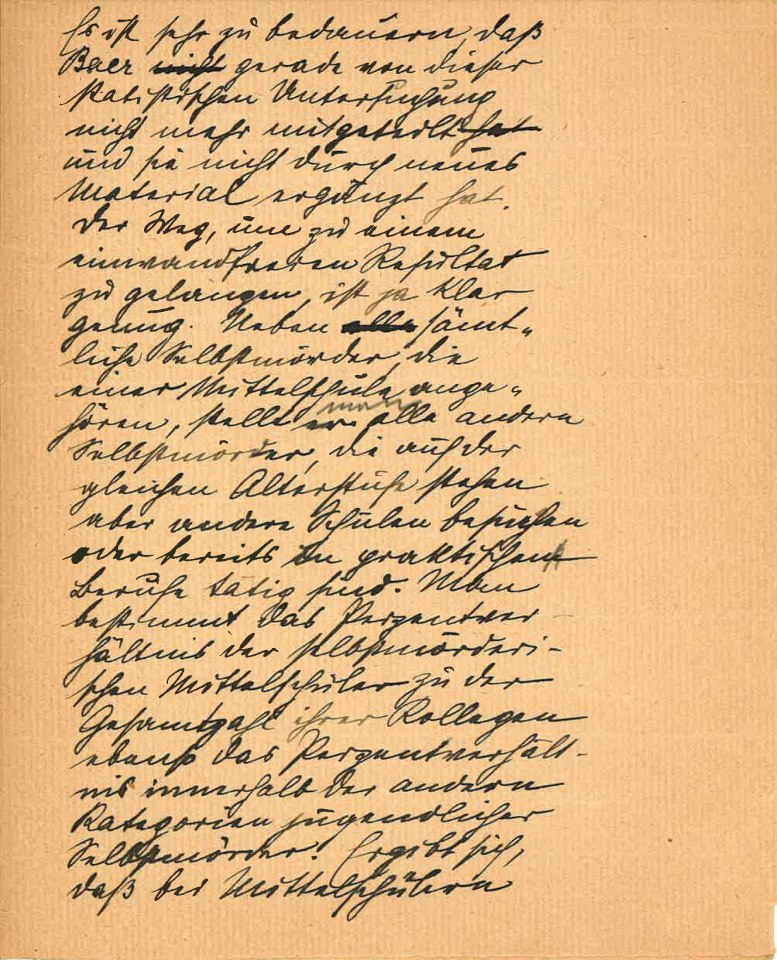 Es ist sehr zu bedauern, daß
Baer nicht gerade von dieser
statistischen Untersuchung
nicht mehr mitgeteilt hat
und sie nicht durch neues
Material ergänzt hat.
Der Weg, um zu einem
einwandfreien Resultat
zu gelangen, ist ja klar
genug. Neben alle sämt-
liche Selbstmörder, die
einer Mittelschule ange-
man
hören, stelle er alle andern
Selbstmörder, die auf der
gleichen Altersstufe stehen
aber andere Schulen besuchen
oder bereits in praktischen
Berufe tätig sind. Man
bestimmt das Perzentver-
hältnis der selbstmörderi-
schen Mittelschüler zu der
Gesamtzahl ihrer Kollegen
ebenso das Perzentverhält-
nis innerhalb der andern
Kategorien jugendlicher
Selbstmörder. Ergibt sich,
daß bei Mittelschülern